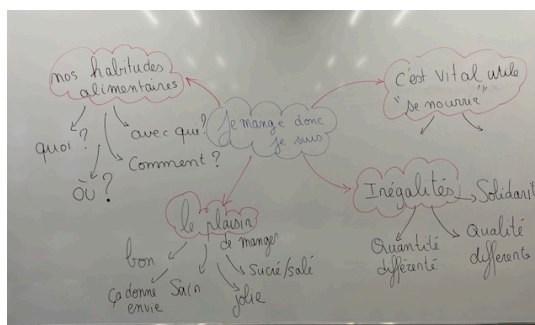 nos habitudes
alimentaires
quoi ?
Où ?
avec qui?
Comment ?
Je mange donc
je suis
c'est vital utile
"se nourrie"
Inégalités
Solidarit
Quantité
différenté
Qualité
différente
le plaisir
de manger
bon
ça donne
envie
Sain
jolie
sucré/salé